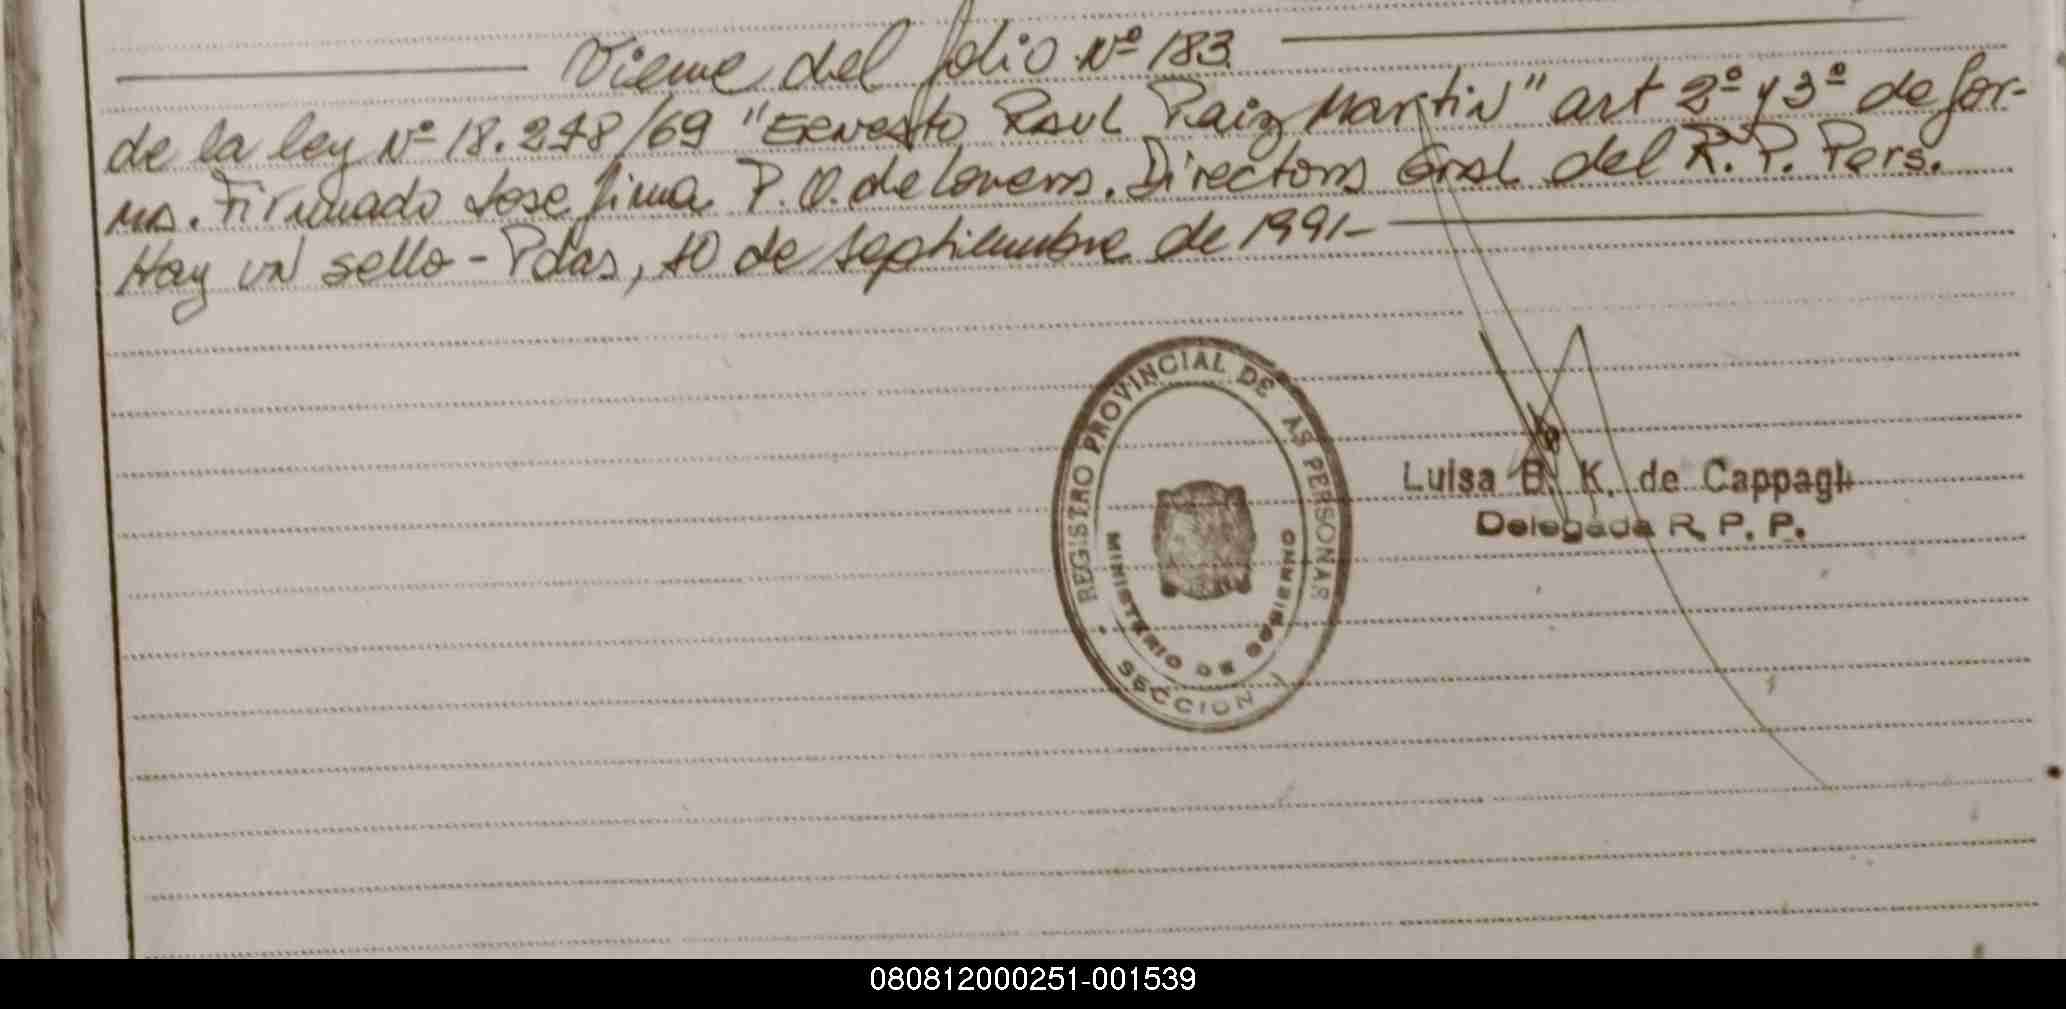 Viene del folio Nº 183.
de la ley Nº 18.248/69 "Ernesto Raul Paiz Martin" art 2º y 3º de for-
ma. Firmado Josefina P. O. de Lovera. Directora Gral del R. P. Pers.
Hay un sello - Pdas, 10 de septiembre de 1991-
REGISTRO PROVINCIAL DE AS PERSONAS
MINISTERIO DE GOBIERNO
SECCION
Luisa B. K. de Cappagli
Delegada R. P. P.
080812000251-001539